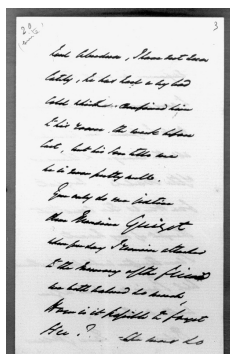 3
Lord Aberdeen, I have not seen
lately, he has had a very bad
cold which confined him
to his room the week before
last, but his son tells me
he is now pretty well.
You only do me justice
Monsieur Guizot
when you say I remain attached
to the memory of the friend
we both
How is it possible to forget
Her? She was so